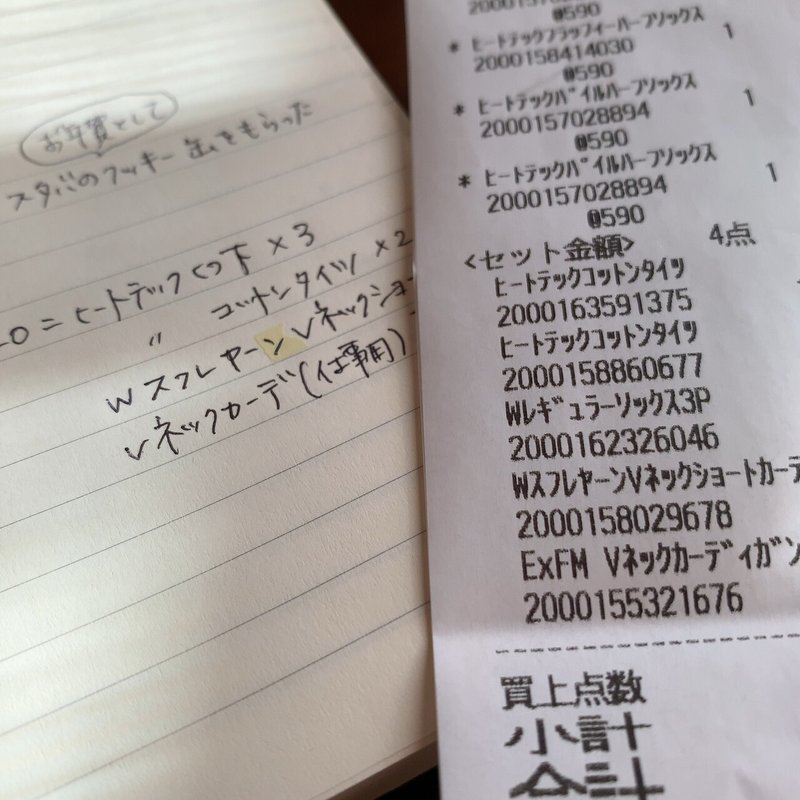 お年賀として
スタバのクッキー缶をもらった
=ヒートテックくつ下 ×3
〃 コットンタイツ ×2
WスフレヤーンVネックショー
Vネックカーデ(仕事用)
@590
* ヒートテックフラッフィーハーフソックス 1
2000158414030
@590
* ヒートテックパイルハーフソックス 1
2000157028894
@590
* ヒートテックパイルハーフソックス 1
2000157028894
@590
<セット金額> 4点
ヒートテックコットンタイツ
2000163591375
ヒートテックコットンタイツ
2000158860677
Wレギュラーソックス3P
2000162326046
WスフレヤーンVネックショートカーデ
2000158029678
ExFM Vネックカーディガン
2000155321676
買上点数
小計
合計